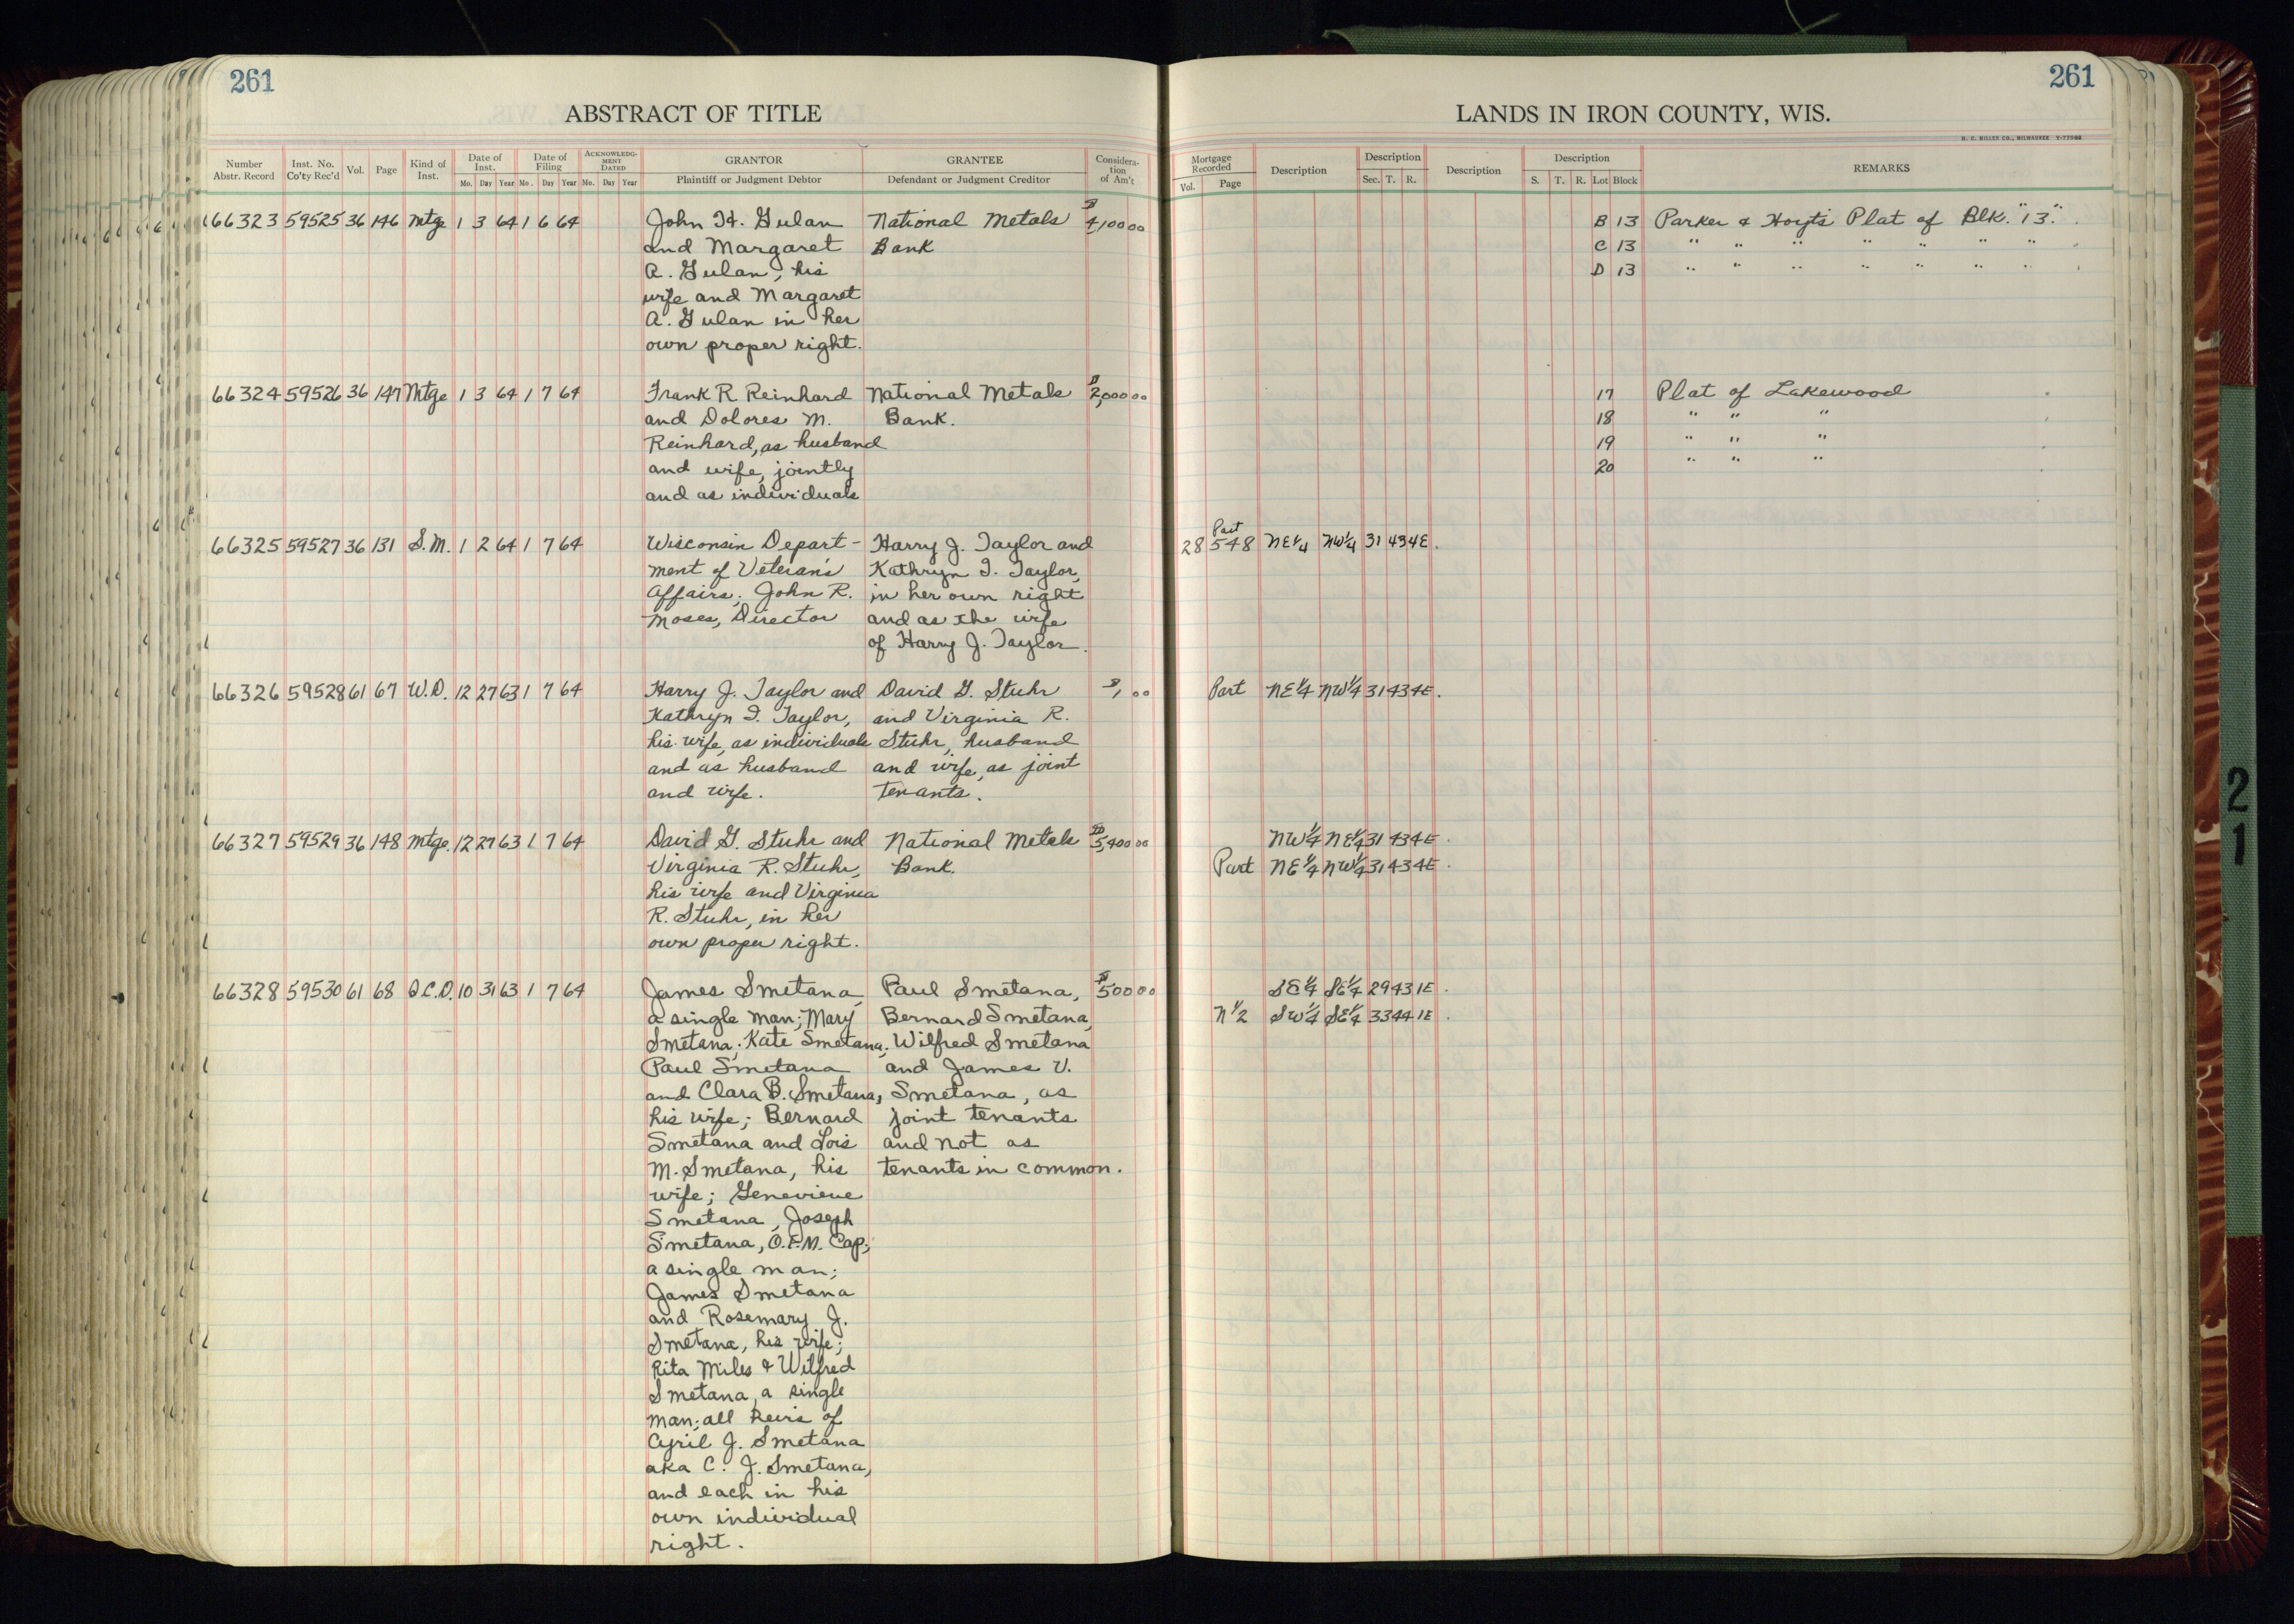 261
ABSTRACT OF TITLE
Number Abstr. Record | Inst. No. Co'ty Rec'd | Vol. | Page | Kind of Inst. | Date of Inst. Mo. Day Year | Date of Filing Mo. Day Year | ACKNOWLEDGMENT DATED Mo. Day Year | GRANTOR Plaintiff or Judgment Debtor | GRANTEE Defendant or Judgment Creditor | Consideration of Am't
66323 59525 36 146 Mtge 1 3 64 1 6 64 John H. Gulan National Metals $4,100 00
and Margaret Bank
A. Gulan, his
wife and Margaret
A. Gulan in her
own proper right.
66324 59526 36 147 Mtge 1 3 64 1 7 64 Frank R Reinhard National Metals $2,000 00
and Dolores M. Bank.
Reinhard, as husband
and wife, jointly
and as individuals
66325 59527 36 131 S.M. 1 2 64 1 7 64 Wisconsin Depart- Harry J. Taylor and
ment of Veteran's Kathryn I. Taylor,
Affairs; John R. in her own right
Moses, Director and as the wife
of Harry J. Taylor.
66326 59528 61 67 W.D. 12 27 63 1 7 64 Harry J. Taylor and David G. Stuhr $1, 00
Kathryn I. Taylor, and Virginia R.
his wife, as individuals Stuhr, husband
and as husband and wife, as joint
and wife. tenants.
66327 59529 36 148 Mtge. 12 27 63 1 7 64 David G. Stuhr and National Metals $5,400 00
Virginia R. Stuhr, Bank.
his wife and Virginia
R. Stuhr, in her
own proper right.
66328 59530 61 68 Q.C.D. 10 31 63 1 7 64 James Smetana, Paul Smetana, $500 00
a single man; Mary Bernard Smetana,
Smetana; Kate Smetana; Wilfred Smetana
Paul Smetana and James V.
and Clara B. Smetana, Smetana, as
his wife; Bernard joint tenants
Smetana and Lois and not as
M. Smetana, his tenants in common.
wife; Genevieve
Smetana, Joseph
Smetana, O.F.M. Cap;
a single man;
James Smetana
and Rosemary J.
Smetana, his wife;
Rita Miles & Wilfred
Smetana, a single
man; all heirs of
Cyril J. Smetana
aka C. J. Smetana,
and each in his
own individual
right.
261
LANDS IN IRON COUNTY, WIS.
H. C. MILLER CO., MILWAUKEE
Mortgage Recorded Vol. Page | Description | Description Sec. T. R. | Description | Description S. T. R. Lot Block | REMARKS
B 13 Parker & Hoyt's Plat of Blk. "13".
C 13 " " " " " " "
D 13 " " " " " " "
17 Plat of Lakewood
18 " " "
19 " " "
20 " " "
Part
28 548 NE¼ NW¼ 31 43 4E.
Part NE¼ NW¼ 31 43 4E.
NW¼ NE¼ 31 43 4E.
Part NE¼ NW¼ 31 43 4E.
SE¼ SE¼ 29 43 1E.
N½ SW¼ SE¼ 33 44 1E.
2
1